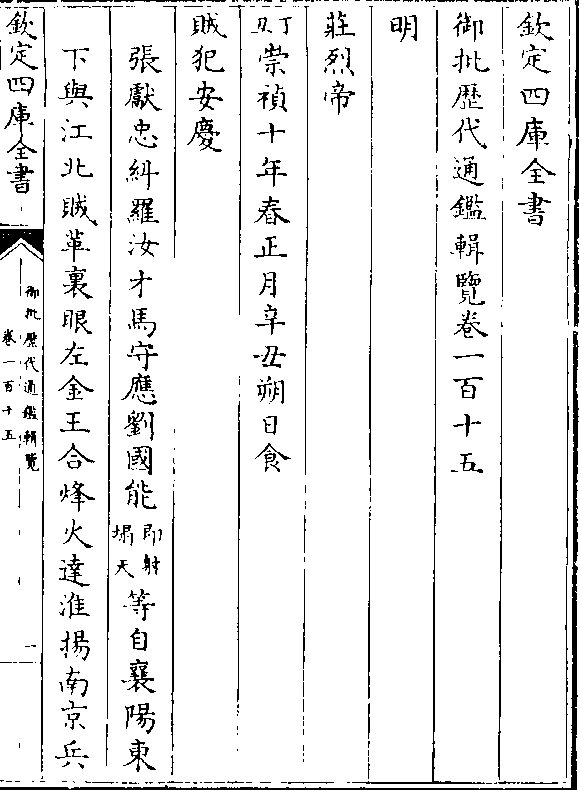 欽定四庫全書
御批歷代通鑑輯覽卷一百十五
明
莊烈帝
丁丑崇禎十年春正月辛丑朔日食
賊犯安慶
張獻忠糾羅汝才馬守應劉國能即射塌天等自襄陽東
下與江北賊革裏眼左金王合烽火達淮揚南京兵
欽定四庫全書
御批歷代通鑑輯覽
卷一百十五
一